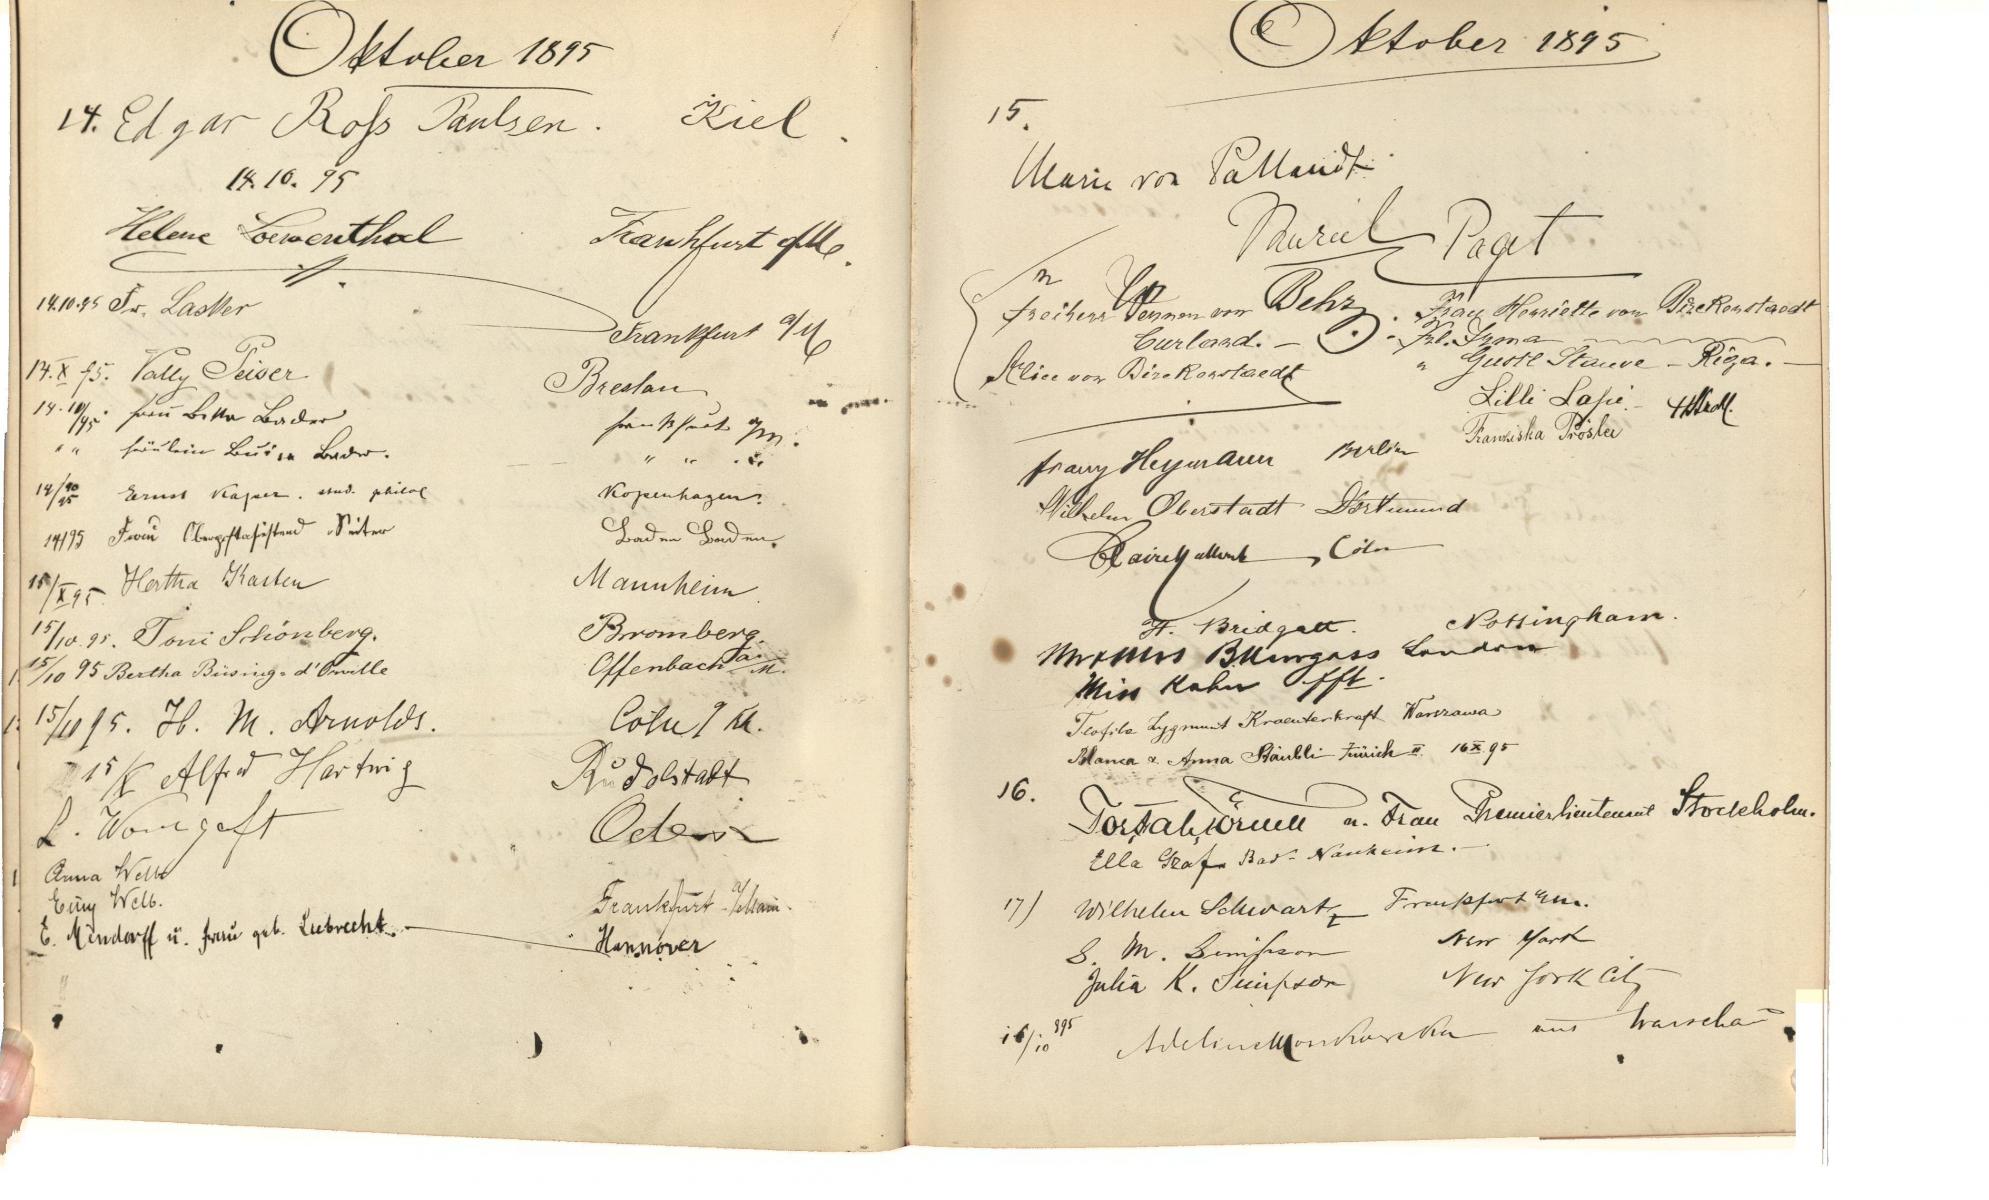 Oktober 1895
14. Edgar Roß Paulsen. Kiel.
14.10.95
Helene Loewenthal Frankfurt a/M.
14.10.95 Fr. Lasker Frankfurt a/M
14.X 95. Vally Peiser Breslau
14.10/95. Frau Bader Frankfurt a/M.
" " Fräulein Bader. " " "
14/10 95 Ernst Kaper. stud. philol Kopenhagen.
14/95 Frau Seiter Baden Baden.
15/X 95. Hertha Kasten Mannheim
15/10.95. Toni Schönberg. Bromberg.
15/10 95 Bertha Büsing-d'Orville Offenbach a/M.
15/10 95. H. M. Arnolds. Cöln
15/X Alfred Hartwig Rudolstadt
L. Odessa
Anna Welb
Welb. Frankfurt a/Main.
E. Mindorff u. Frau geb. Lubrecht. Hannover
Oktober 1895
15.
Marie von Pallandt.
Muriel Paget
Freiherr von Behr. Frau Henriette von Birckenstaedt
Curland. - Frl. Irma
Alice von Birckenstaedt " Gustl Stauve - Riga. -
Lilli
Franziska Prösler
Franz Heymann Berlin
Wilhelm Oberstadt Dortmund
Claire Cöln
H. Bridgett. Nottingham.
London
Miss Kahn fft.
Teofila Zygmunt Kraeuterkraft Warszawa
Blanca & Anna Stäubli Zürich II 16 X 95
16.
u. Frau Premierlieutenant Stockholm.
Ella Graf Bad-Nauheim. -
17) Wilhelm Schwartz Frankfurt a/M.
S. M. Simpson New York
Julia K. Simpson New York City
16/10 895 Adelina aus Warschau